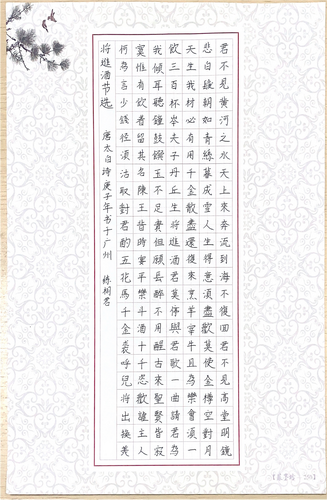 君不見黃河之水天上來奔流到海不復回君不見高堂明鏡
悲白髮朝如青絲暮成雪人生得意須盡歡莫使金樽空對月
天生我材必有用千金散盡還復來烹羊宰牛且為樂會須一
飲三百杯岑夫子丹丘生將進酒君莫停與君歌一曲請君為
我傾耳聽鐘鼓饌玉不足貴但願長醉不用醒古來聖賢皆寂
寞惟有飲者留其名陳王昔時宴平樂斗酒十千恣歡謔主人
何為言少錢徑須沽取對君酌五花馬千金裘呼兒將出換美
將進酒节选 唐太白诗庚子年书于广州